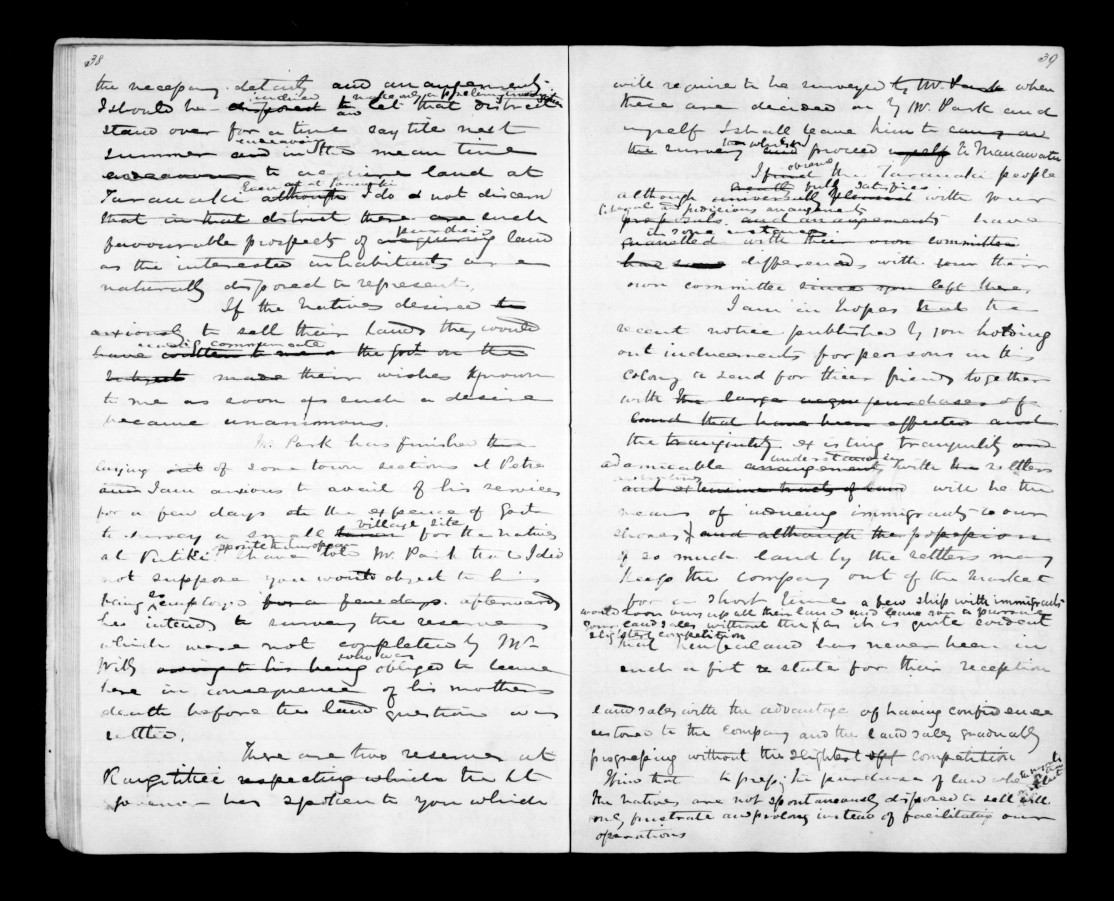 38
the necessary details and an arrangement
I should be disposed to let that district
inclined
stand over for a time say till next
and
summer and in the mean time
endeavour
endeavour to acquire land at
Taranaki although I do not discern
Even at Taranaki
that in that district there are such
favourable prospects of acquiring land
purchasing
as the interested inhabitants are
naturally disposed to represent.
If the Natives desired to
anxiously to sell their lands they would
have written to me or the Govt on the
communicate
subject made their wishes known
to me as soon as such a desire
became unanimous.
Mr. Park has finished the
laying out of some town sections at Petre
and I am anxious to avail of his services
for a few days at the expence of Govt
to survey a small town for the natives
village site
at Putiki. I have told Mr. Park that I did
opposite the European
not suppose you would object to his
being so employed for a few days. afterwards
he intends to survey the reserves
which were not completed by Mr
Wills owing to his being obliged to leave
who was
here in consequence of his mothers
death before the land question was
settled.
There are two reserves at
Rangitikei respecting which the Lt
Governor has spoken to you which
39
will require to be surveyed by Mr. Park when
these are decided on by Mr. Park and
myself I shall leave him to carry on
the survey and proceed myself to Manawatu
I find the Taranaki people
although universally pleased with your
fully satisfied
liberal and judicious arrangements
proposals and arrangements have
in some instances
quarrelled with their own committee
had some differences with your their
own committee since you left there.
I am in hopes that the
recent notice published by you holding
out inducements for persons in this
colony to send for their friends together
with the large purchases of
land that have been effected and
the tranquility existing tranquility and
understanding
amicable arrangements with the settlers
and extensive tracts of land will be the
means of inducing immigrants to our
shores and although the possession
of so much land by the settlers may
keep the Company out of the market
for a short time a few ship with immigrants
would soon buy up all their land and leave you a pursuing
your land sales without the as it is quite evident
slightest competition
that New Zealand has never been in
such a fit state for their reception
land sales with the advantage of having confidence
restored to the Company and the land sales gradually
progressing without the slightest competition
that to press the purchase of land where
the natives are not spontaneously disposed to sell will
only frustrate and prolong instead of facilitating our
operations